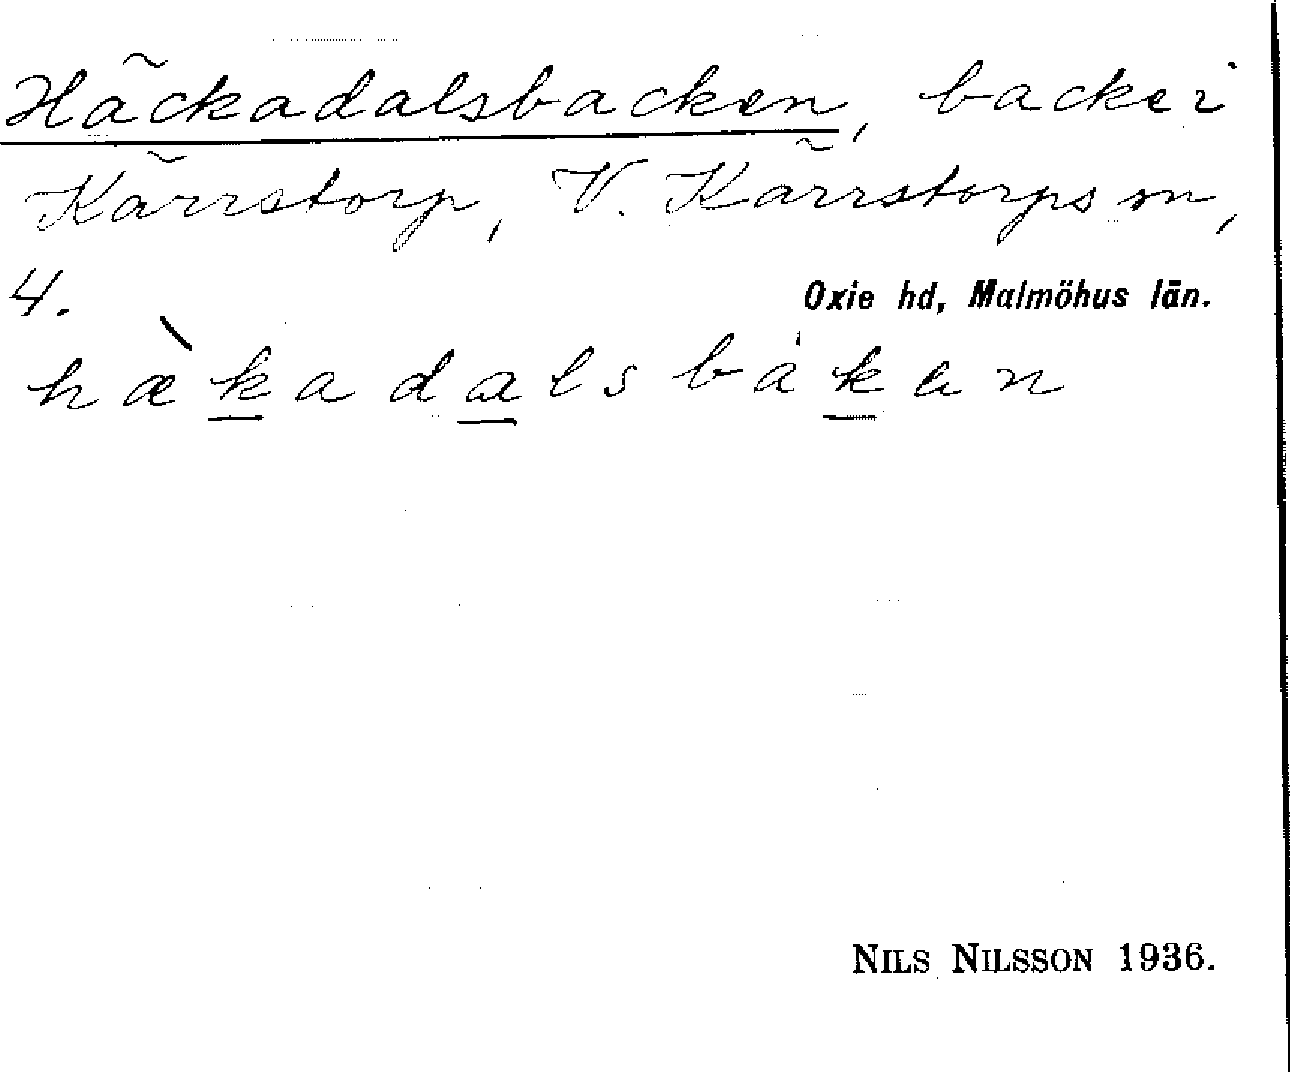 Häckadalsbacken, backe i
Kärrstorp, V. Kärrstorps sn,
4.
Oxie hd, Malmöhus län.
hæ̀kadalsbákan
NILS NILSSON 1936.